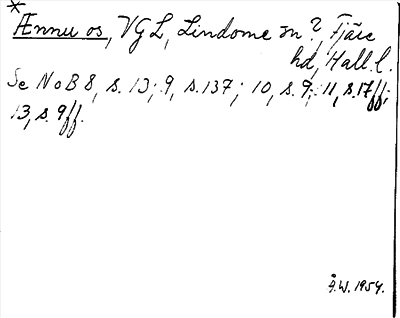 *
Ænnu os, VGL, Lindome sn?, Fjäre
hd, Hall. l.
Se NoB 8, s. 13; 9, s. 137; 10, s. 9; 11, s. 17ff;
13, s. 9ff.
Å.W. 1954.